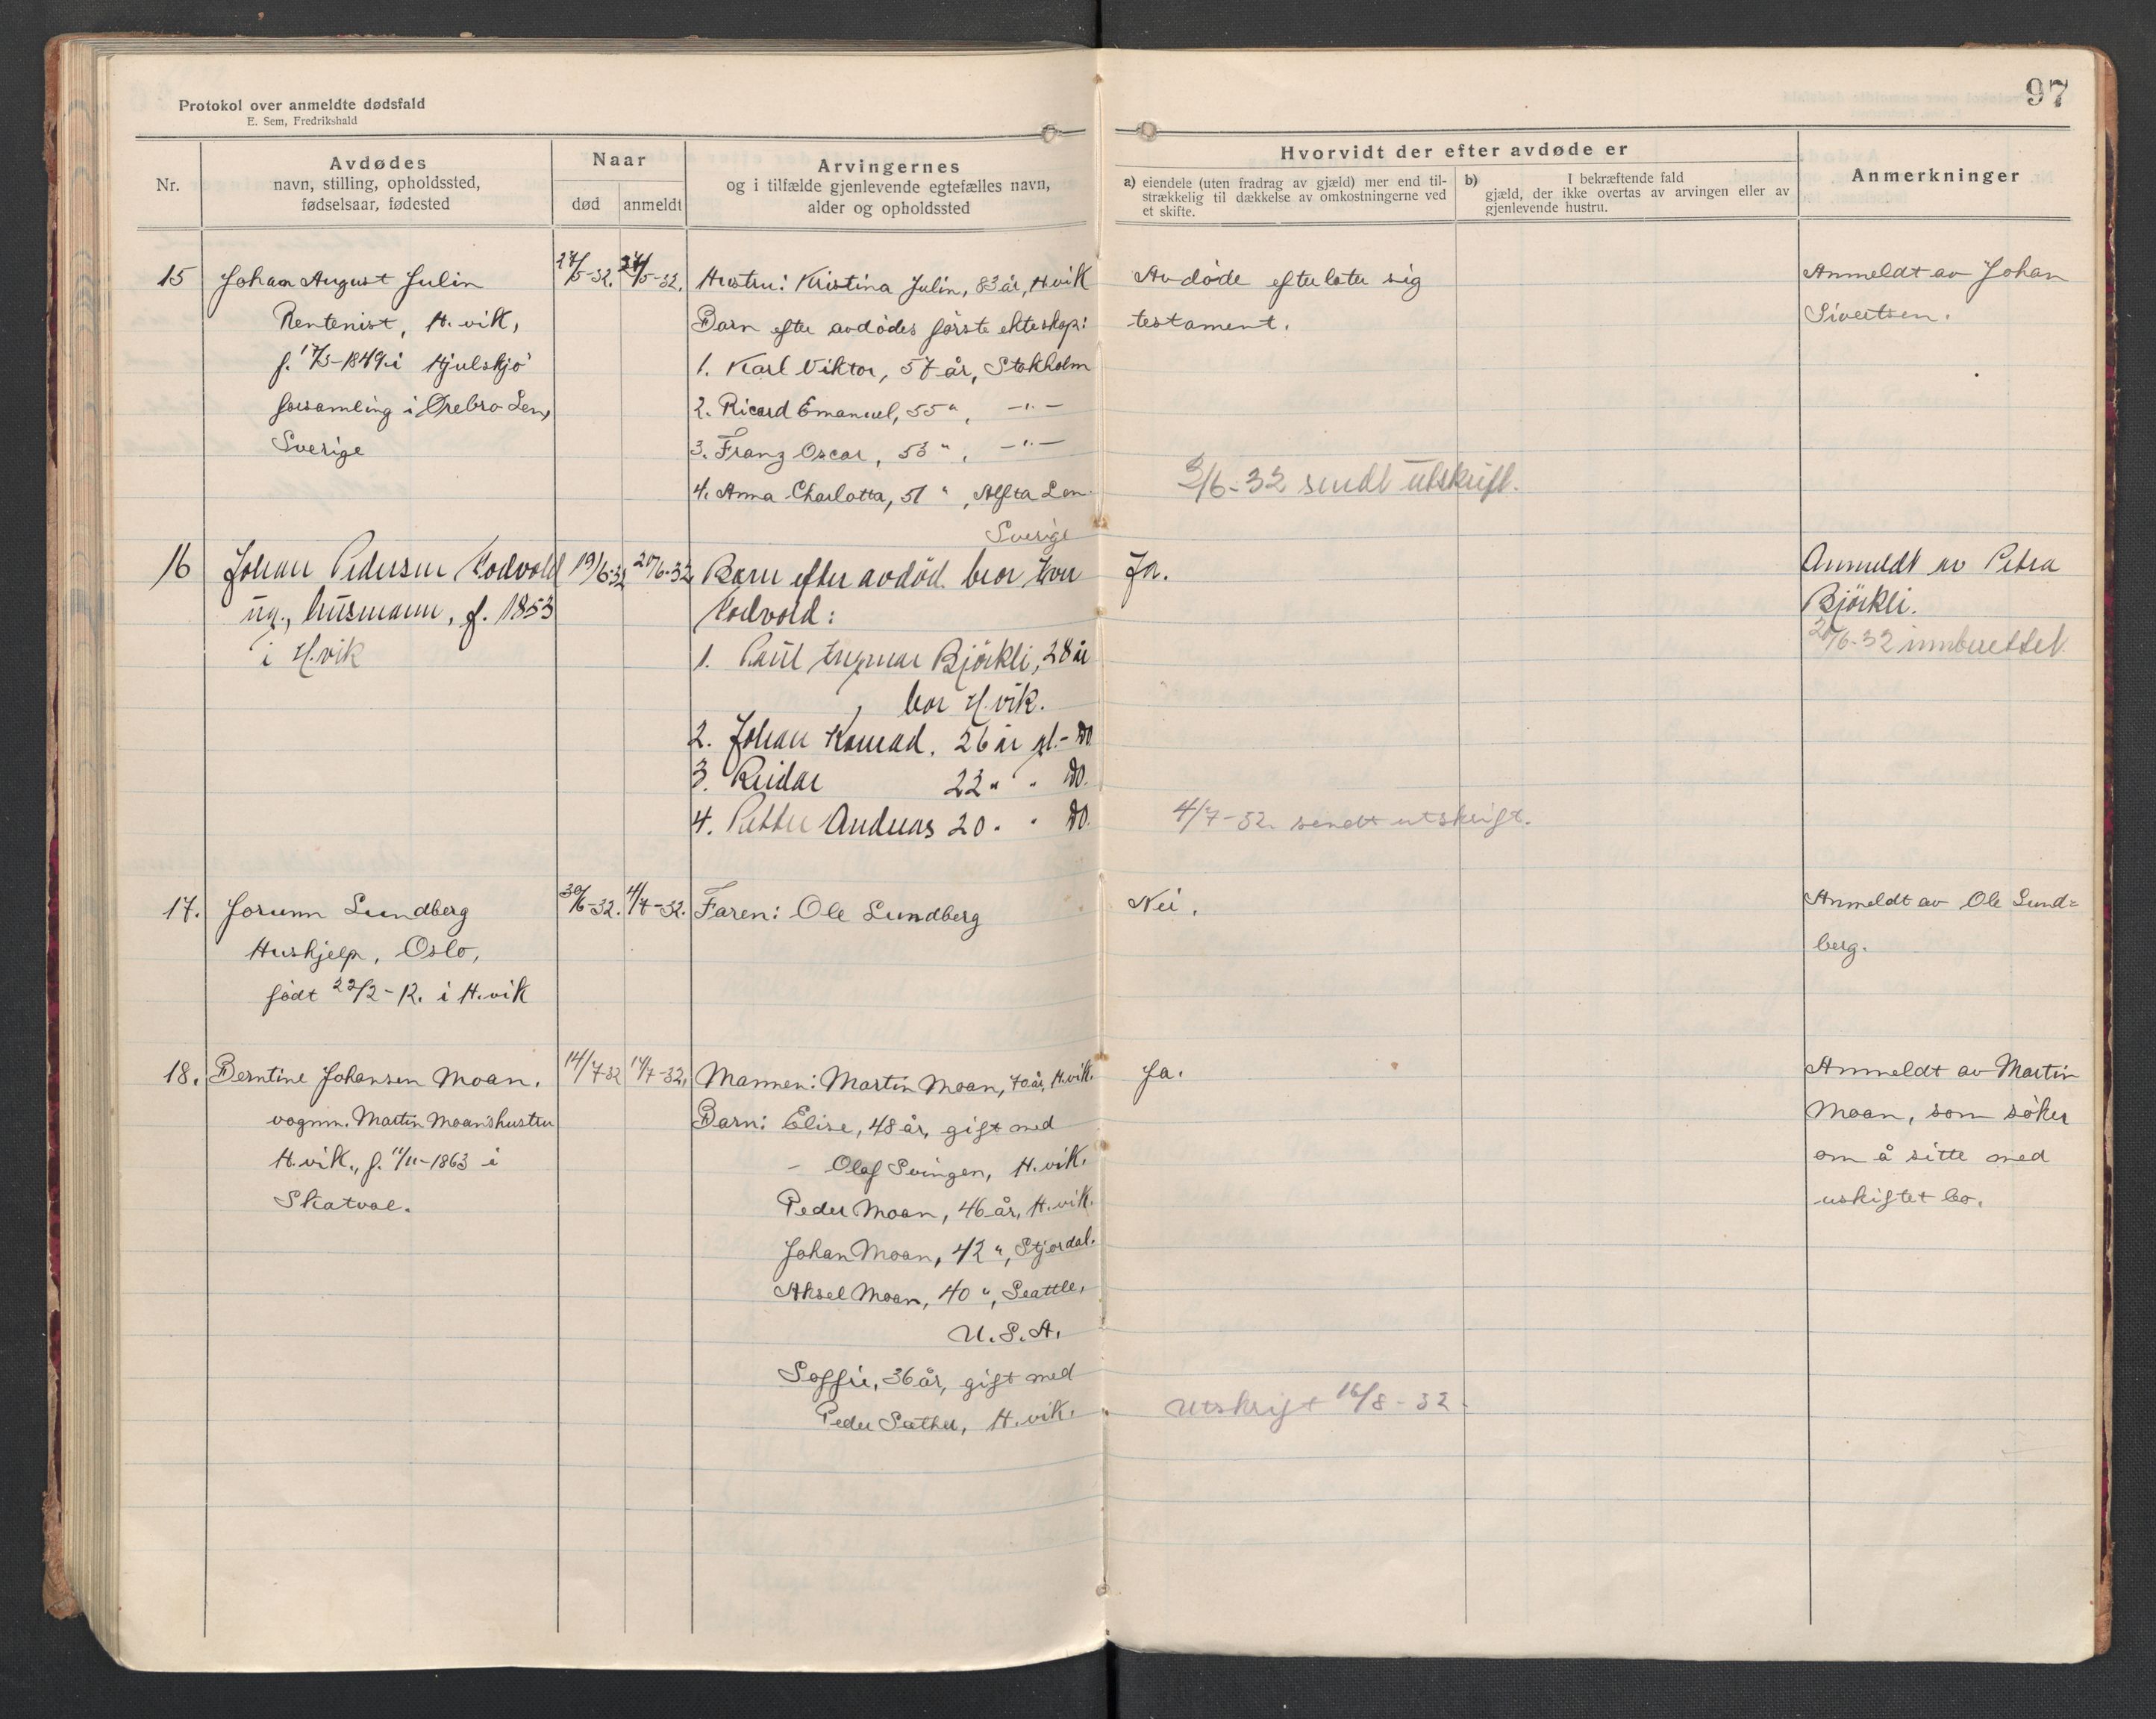 Protokol over anmeldte dødsfald
E. Sem, Fredrikshald
97
Nr.
Avdødes
navn, stilling, opholdssted,
fødselsaar, fødested
Naar
død
anmeldt
Arvingernes
og i tilfælde gjenlevende egtefælles navn,
alder og opholdssted
Hvorvidt der efter avdøde er
a) eiendele (uten fradrag av gjæld) mer end til-
strækkelig til dækkelse av omkostningerne ved
et skifte.
b) I bekræftende fald
gjæld, der ikke overtas av arvingen eller av
gjenlevende hustru.
Anmerkninger
15
Johan August Julin
Rentenist, H.vik,
f. 17/3-1849 i Hjulsjö
forsamling i Ørebro Len,
Sverige
24/5-32.
24/5-32.
Hustru: Kristina Julin, 83 år, H.vik
Barn efter avdødes første ekteskap:
1. Karl Viktor, 57 år, Stokholm
2. Ricard Emanuel, 55 " , —"—
3. Franz Oscar, 53 " , —"—
4. Anna Charlotta, 51 " , Alfta Len
Sverige
Avdøde efterlater sig
testament.
3/6-32 sendt utskrift.
Anmeldt av Johan
Sivertsen.
16
Johan Pedersen Kodvold
ug., husmann, f. 1853
i H.vik
19/6-32
20/6-32
Barn efter avdød. bror Iver
Kodvold:
1. Paul Ingmar Björkli, 28 år
bor H.vik.
2. Johan Konrad. 26 år gl.- Do
3. Reidar 22 " " Do.
4. Petter Andreas 20 " " Do.
Ja.
4/7-32. sendt utskrift.
Anmeldt av Petra
Björkli.
20/6-32 innberettet.
17.
Jorunn Lundberg
Hushjelp, Oslo,
født 22/2-12. i H.vik
30/6-32.
4/7-32.
Faren: Ole Lundberg
Nei.
Anmeldt av Ole Lund=
berg.
18.
Berntine Johansen Moan.
vognm. Martin Moans hustru
H.vik., f. 11/11-1863 i
Skatval.
14/7-32
14/7-32,
Mannen: Martin Moan, 70 år, H.vik.
Barn: Elise, 48 år, gift med
- Olaf Svingen, H.vik.
Peder Moan, 46 år, H.vik.
Johan Moan, 42 ", Stjørdal.
Aksel Moan, 40 ", Seattle,
U.S.A.
Soffie, 36 år, gift med
Peder Sæther, H.vik.
Ja.
Utskrift 16/8-32.
Anmeldt av Martin
Moan, som søker
om å sitte med
uskiftet bo.